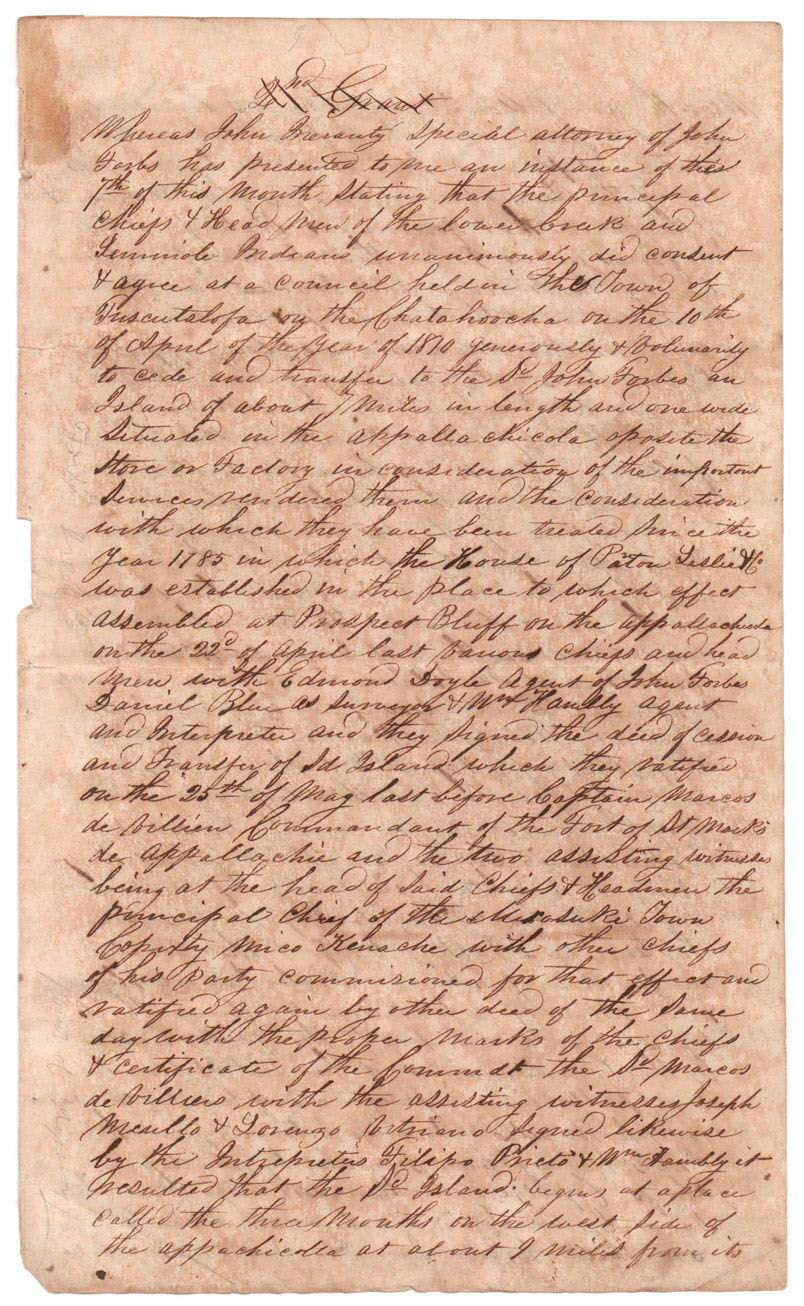 2nd Grant
Whereas John Inerarity Special attorney of John
Forbs has presented to me an instance of the
7th of this Month Stating that the principal
Chiefs & Head Men of the lower Creek and
Seminole Indians unanimously did consent
& agree at a council held in The Town of
Tuscutalofa on the Chatahoocha on the 10th
of April of the Year of 1810 generously & Volunarily
to cede and transfer to the Sd John Forbes an
Island of about 7 Miles in length and one wide
Situated in the appallachicola oposite the
Store or Factory in consideration of the important
Services rendered them and the consideration
with which they have been treated Since the
Year 1785 in which the House of Panton Leslie & Co
was established in the place to which effect
assembled at Prospect Bluff on the appallachicola
on the 22d of April last Various Chiefs and head
Men with Edmond Doyle Agent of John Forbes
Daniel Blue as Surveyor & Wm Hambly agent
and Interpreter and they Signed the deed of cession
and Transfer of Sd Island which they ratified
on the 25th of May last before Captain Marcos
de Villiers Commandant of the Fort of St Marks
de Appallachie and the two assisting witnesses
being at the head of Said Chiefs & Headmen the
principal Chief of the Micosuki Town
Mico Kenache with other chiefs
of his Party commisioned for that effect and
ratified again by other deed of the Same
day with the proper Marks of the Chiefs
& certificate of the Commdt the Sd Marcos
de Villiers with the assisting witnesses Joseph
& Lorenzo Signed likewise
by the Intrepretes Filipo Prieto & Wm Hambly it
resulted that the Sd Island begins at a place
called the three Mouths on the west Side of
the appachicolla at about 9 miles from its